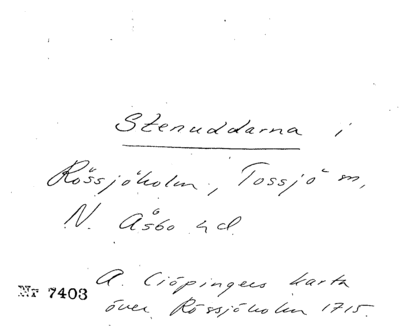 Stenuddarna i
Rössjöholm, Tossjö m,
N. Åsbo hd
A. Ciöpingers karta
Nr 7403
över Rössjöholm 1715.